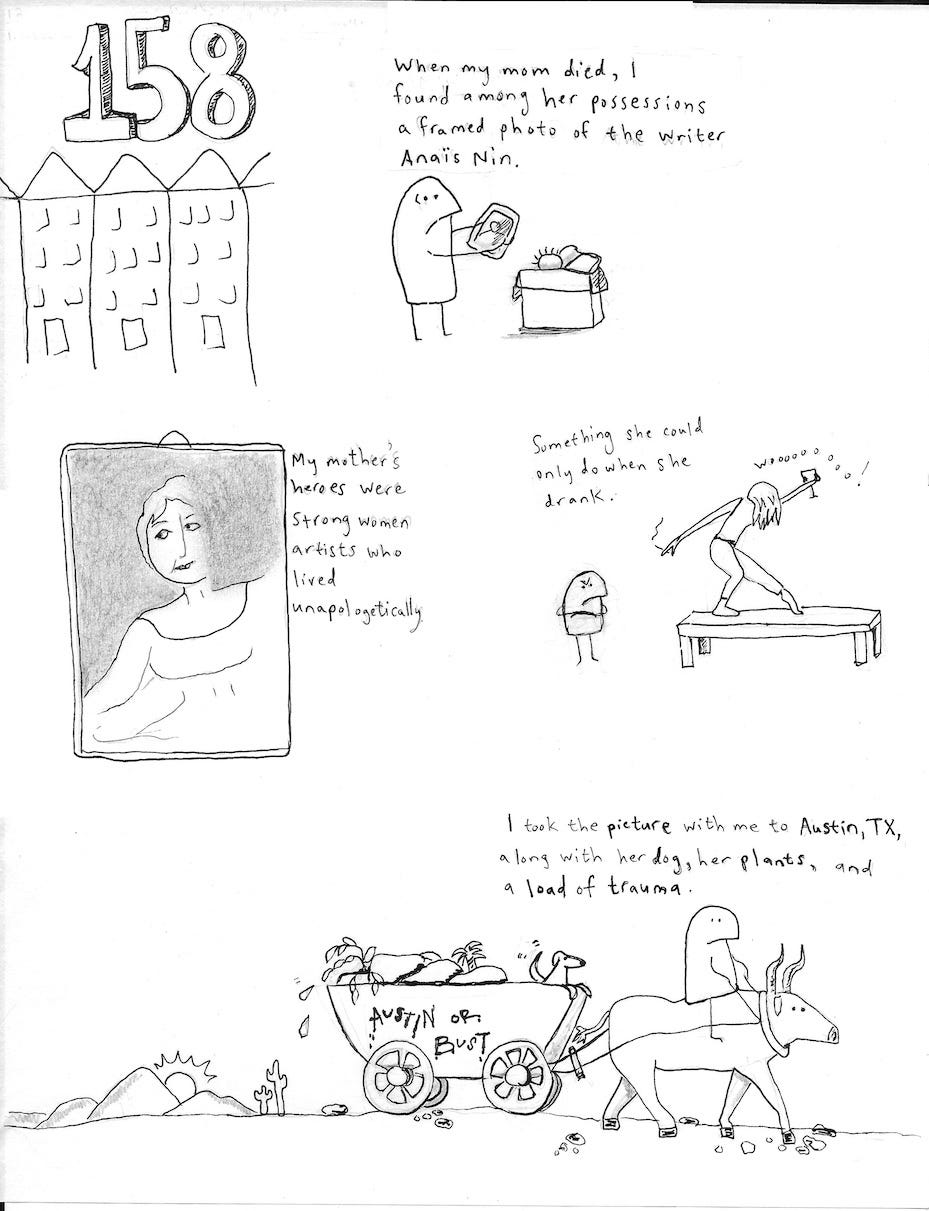 158
When my mom died, I
found among her possessions
a framed photo of the writer
Anaïs Nin.
My mother's
heroes were
strong women
artists who
lived
unapologetically.
Something she could
only do when she
drank.
wooooooooo!
I took the picture with me to Austin, TX,
along with her dog, her plants, and
a load of trauma.
AUSTIN OR
BUST